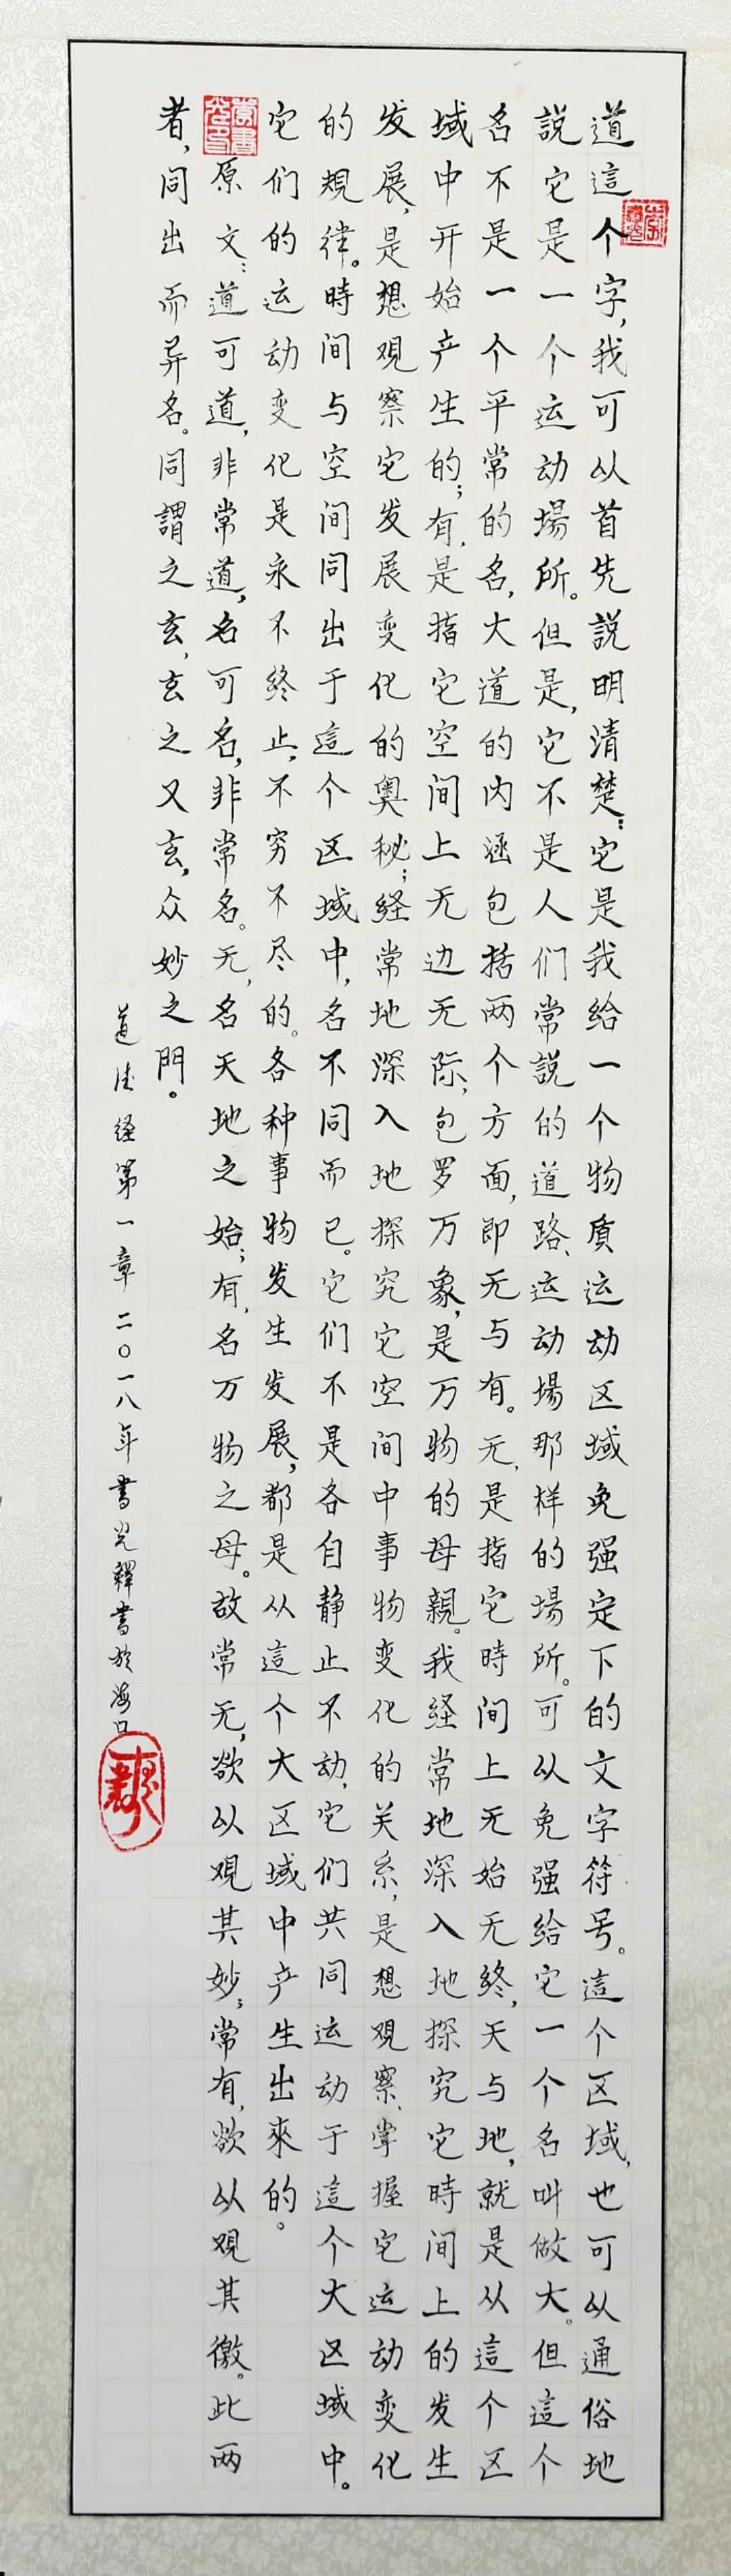 道這个字，我可以首先説明清楚：它是我给一个物质运动区域免强定下的文字符号。這个区域，也可以通俗地
説它是一个运动場所。但是，它不是人们常説的道路、运动場那样的場所。可以免强给它一个名叫做大。但這个
名不是一个平常的名，大道的内涵包括两个方面，即无与有。无，是指它時间上无始无终，天与地，就是从這个区
域中开始产生的；有，是指它空间上无边无际，包罗万象，是万物的母親。我经常地深入地探究它時间上的发生
发展，是想观察它发展变化的奥秘；经常地深入地探究它空间中事物变化的关系，是想观察、掌握它运动变化
的規律。時间与空间同出于這个区域中，名不同而已。它们不是各自静止不动，它们共同运动于這个大区域中。
它们的运动变化是永不终止，不穷不尽的。各种事物发生发展，都是从這个大区域中产生出來的。
原文：道可道，非常道，名可名，非常名。无，名天地之始；有，名万物之母。故常无，欲以观其妙；常有，欲以观其徼。此两
者，同出而异名。同謂之玄，玄之又玄，众妙之門。
道德经第一章 二〇一八年 書光釋書於海口